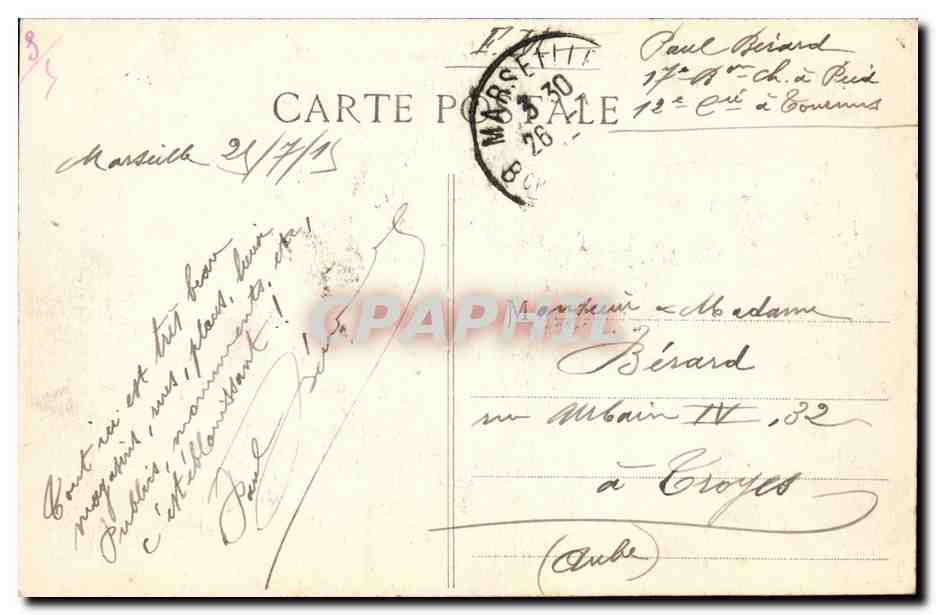 F. M.
Paul Bérard
17e Bon Ch. à Pied
12e Cie à Tournus
CARTE POSTALE
MARSEILLE
3 30
26
Marseille 25/7/15
Tout ici est très beau
magasins, rues, places, lieux
Publics, monuments, etc!
c'est éblouissant!
Paul Bérard
CPAPHIL
Monsieur & Madame
Bérard
rue Urbain IV, 32
à Troyes
(Aube)